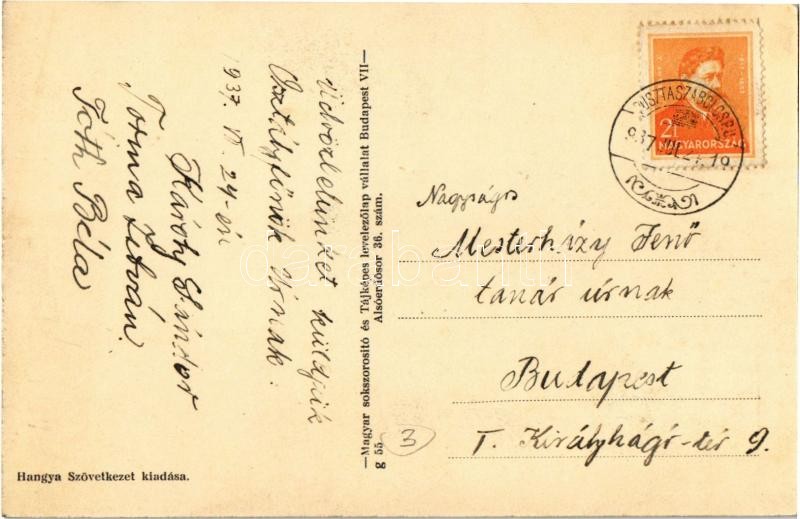 Üdvözletünket küldjük
Osztályfőnök Úrnak:
1937. VI. 24-én
Károly Sándor
Torma István
Tóth Béla
Hangya Szövetkezet kiadása.
—Magyar sokszorosító és Tájképes levelezőlap vállalat Budapest VII—
Alsóerdősor 36. szám.
g 55
3
MAGYARORSZÁG
Nagyságos
Mesterházy Jenő
tanár úrnak
Budapest
I. Királyhágó-tér 9.
darabanth